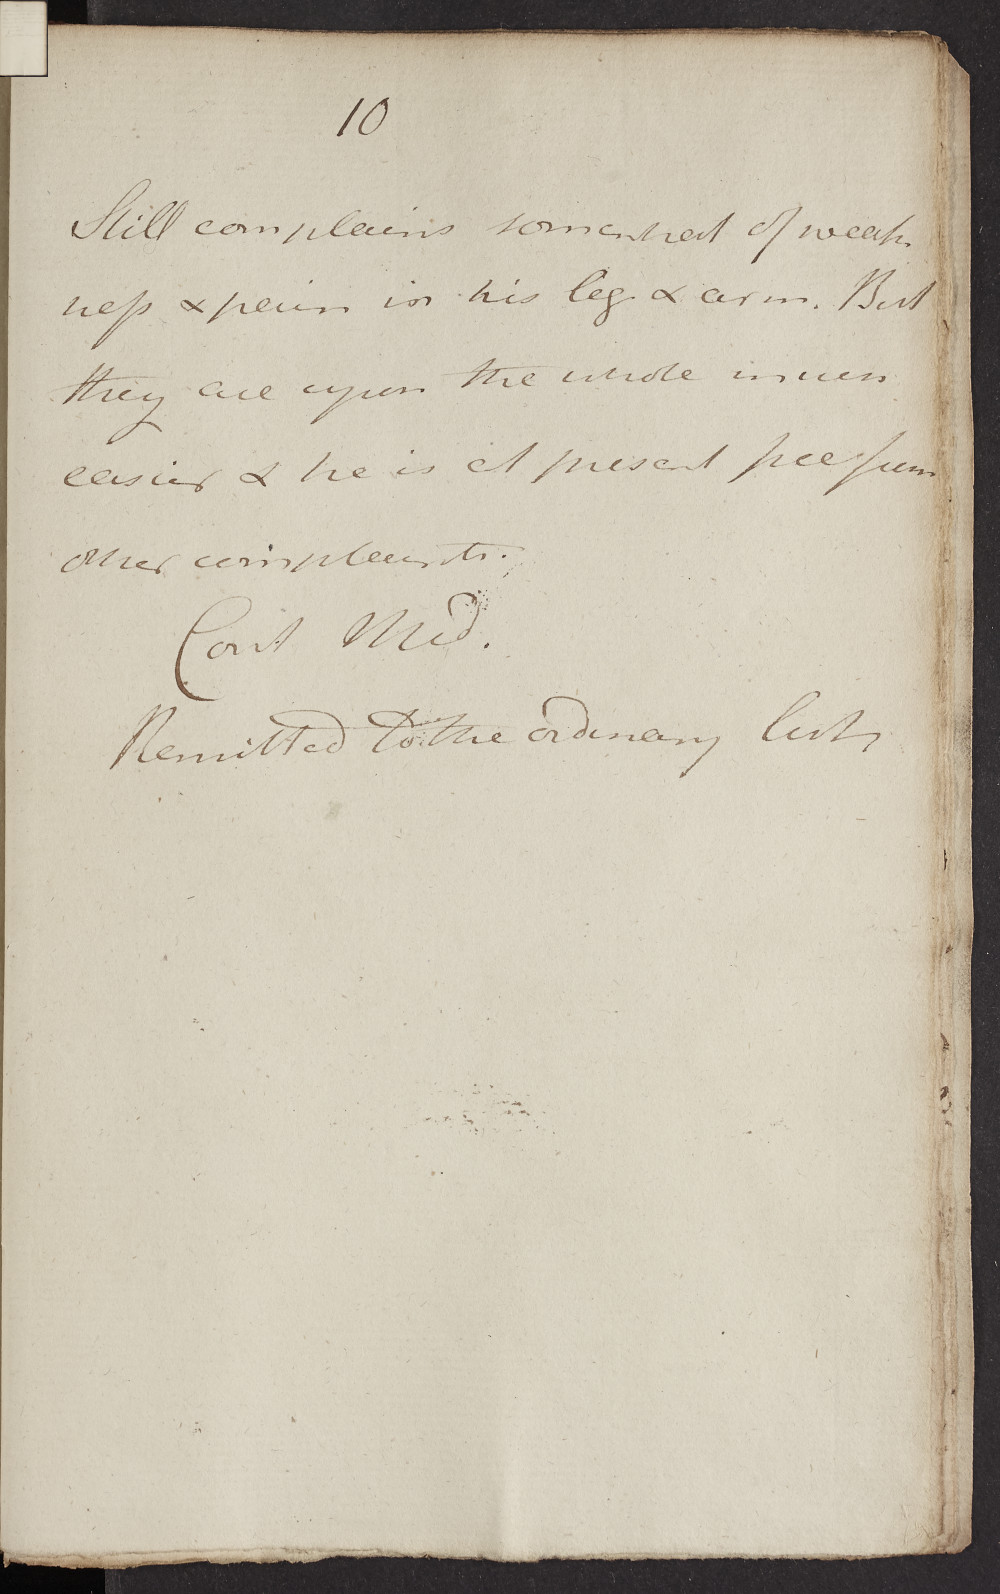 10
Still complains somewhat of weak
ness & pain in his leg & arm. But
they are upon the whole much
easier & he is at present free from
other complaints.
Cont Med.
Remitted to the ordinary list